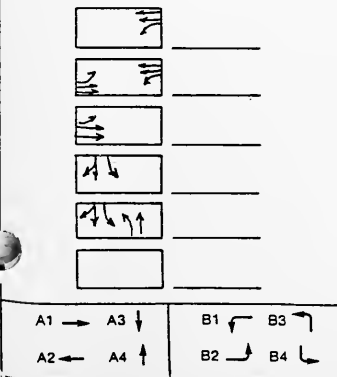 A1 A3 B1 B3
A2 A4 B2 B4